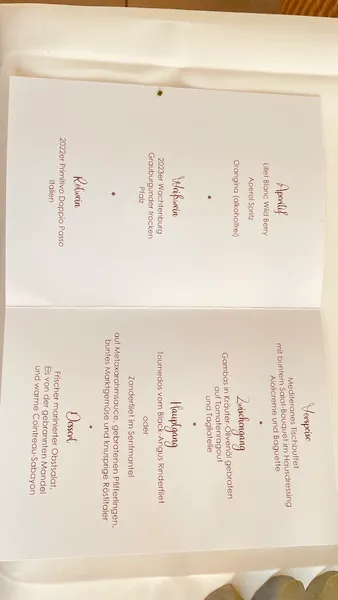 Aperitif
Lillet Blanc Wild Berry
Aperol Spritz
Orangina (alkoholfrei)
Weißwein
2023er Wachtenburg
Grauburgunder trocken
Pfalz
Rotwein
2022er Primitivo Doppio Passo
Italien
Vorspeise
Mediterranes Tischbuffet
mit buntem Salat-Bouquet im Hausdressing
Aiolicreme und Baguette
Zwischengang
Gambas in Kräuter-Olivenöl gebraten
auf Tomatenragout
und Tagliatelle
Hauptgang
Tournedos vom Black-Angus Rinderfilet
oder
Zanderfilet im Senfmantel
auf Metaxarahmsauce, gebratenen Pfifferlingen,
buntes Marktgemüse und knusprige Röstitaler
Dessert
Frischer marinierter Obstsalat
Eis von der gebrannten Mandel
und warme Cointreau-Sabayon